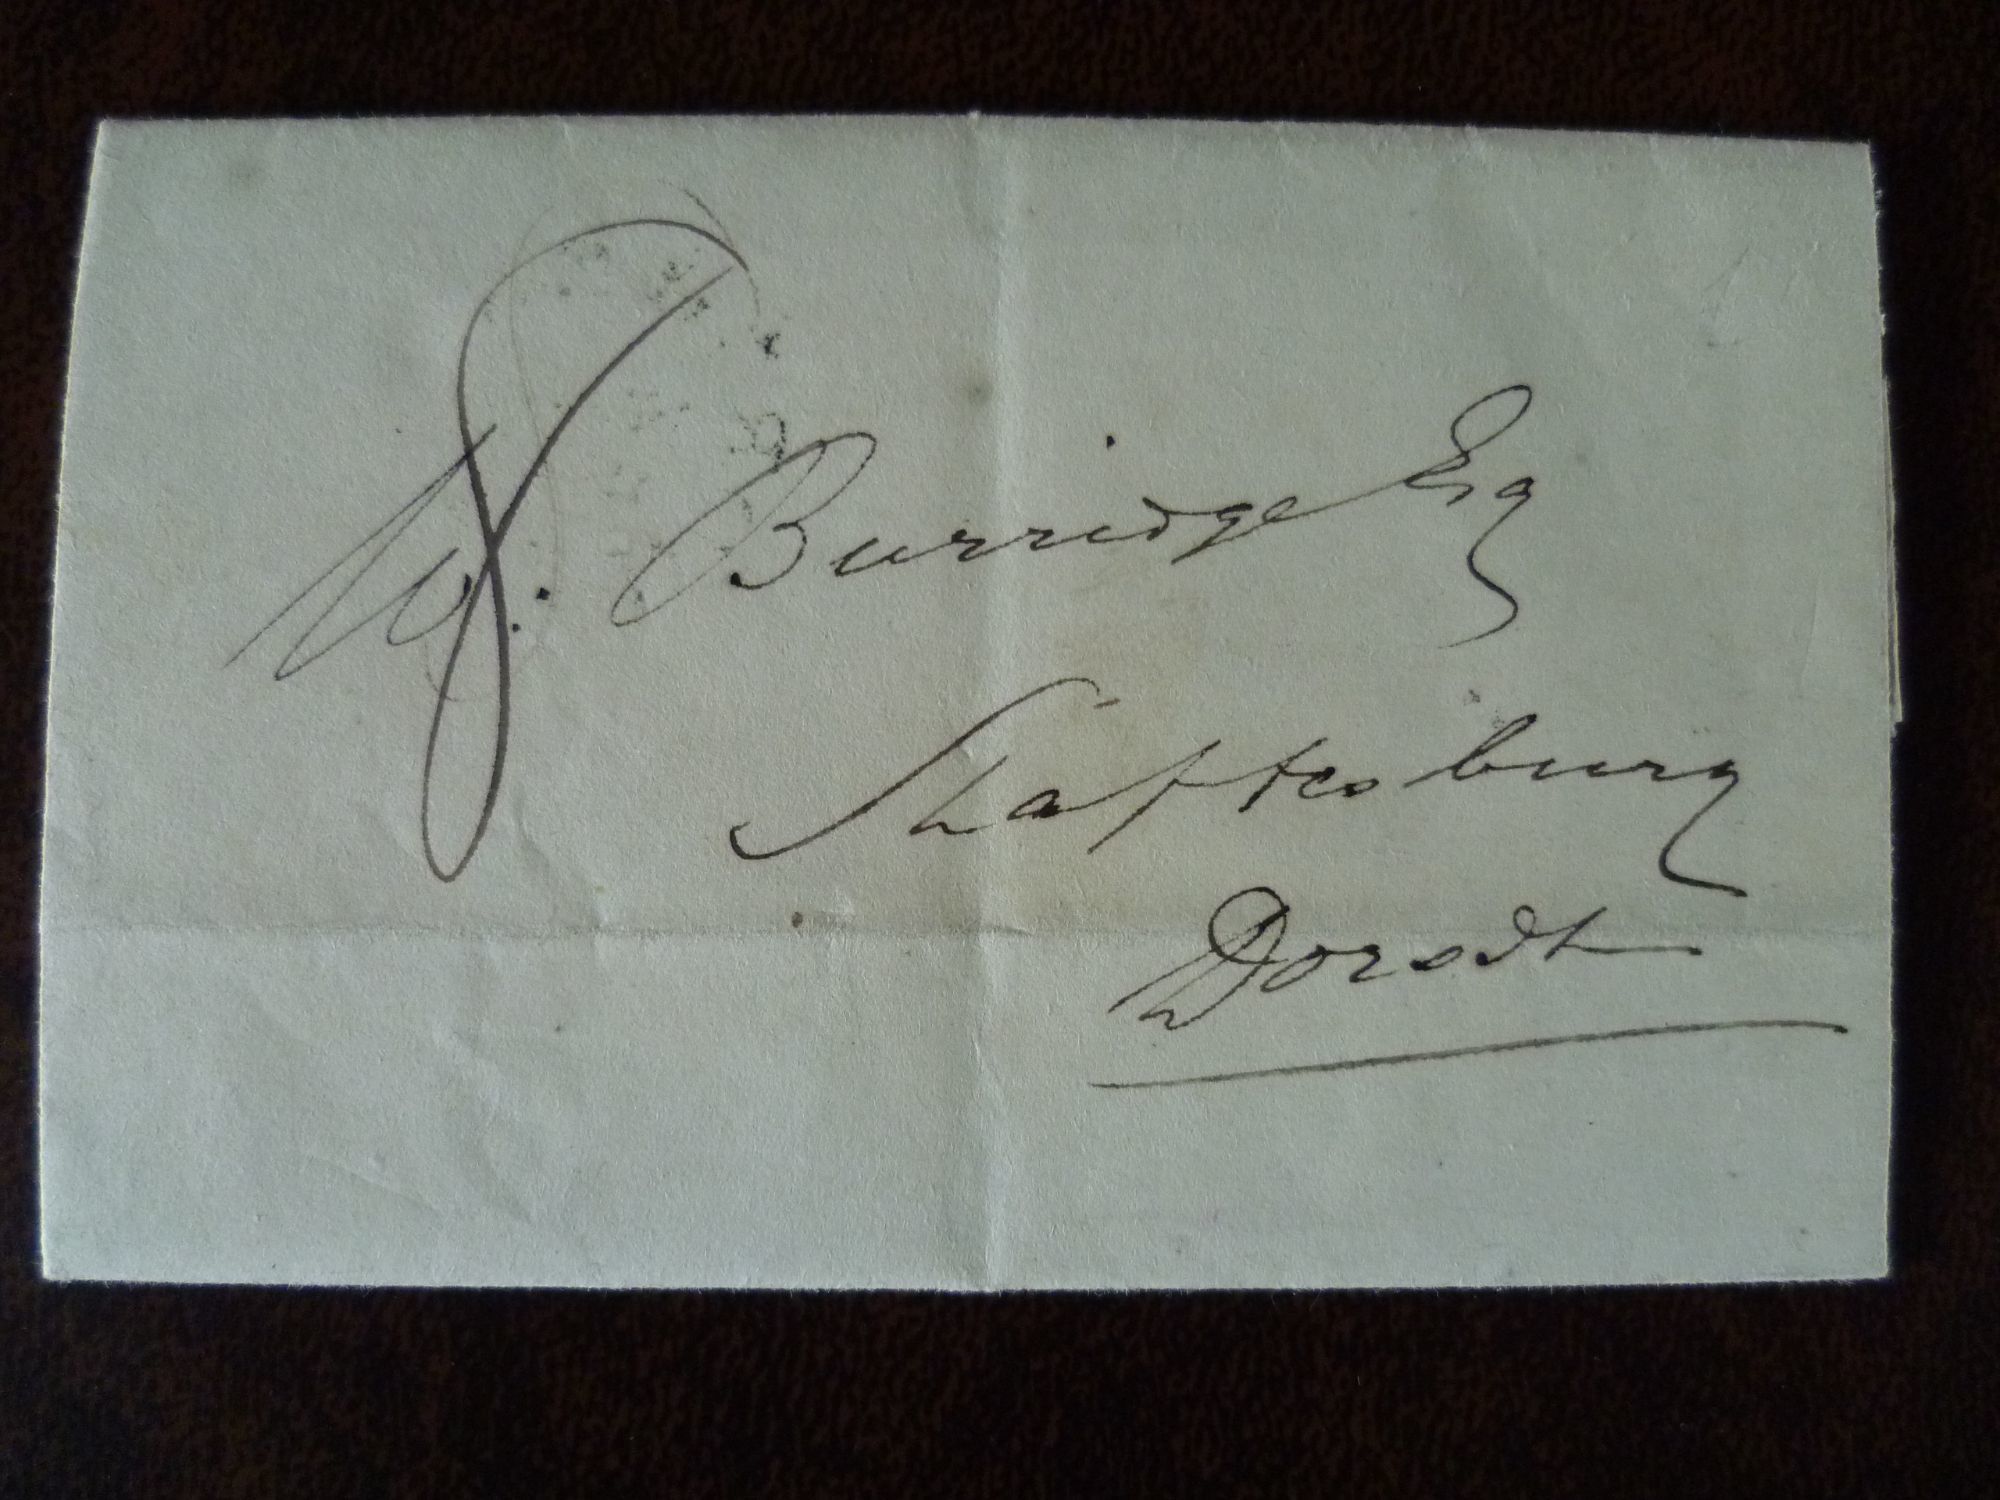 8
W. Burridge Esq
Shaftesbury
Dorset